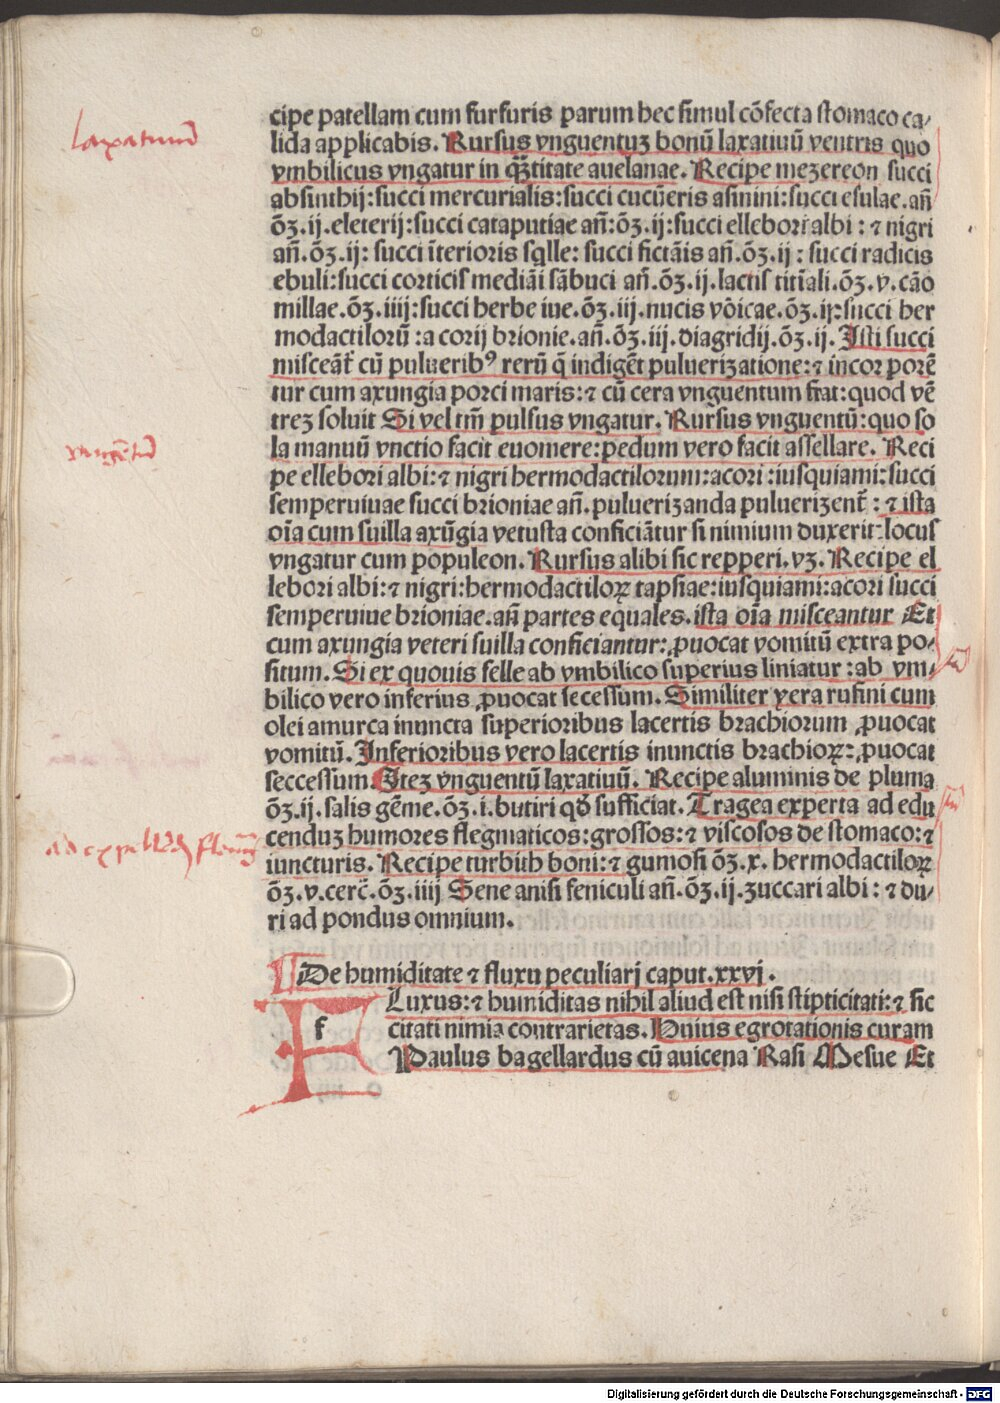 laxatiuũ
cipe patellam cum furfuris parum hec simul cõfecta stomaco ca/
lida applicabis. Rursus vnguentuz bonũ laxatiuũ ventris quo
vmbilicus vngatur in q̃titate auelanae. Recipe mezereon succi
absinthij: succi mercurialis: succi cucũeris asinini: succi esulae. añ
õʒ. ij. eleterij: succi cataputiae añ: õʒ. ij: succi ellebori albi : ⁊ nigri
añ. õʒ. ij: succi ĩterioris sq̃lle: succi fictãis añ. õʒ. ij : succi radicis
ebuli: succi corticis mediãi sãbuci añ. õʒ. ij. lactis titĩali. õʒ. v. cão
millae. õʒ. iiij: succi herbe iue. õʒ. iij. nucis võicae. õʒ. ij: succi her
modactilorũ : a corij brionie. añ. õʒ. iij. diagridij. õʒ. ij. Isti succi
misceãt̃ cũ pulueribꝰ rerũ q̃ indigẽt puluerizatione: ⁊ incor porẽ
tur cum axungia porci maris: ⁊ cũ cera vnguentum fiat: quod vẽ
trez soluit Si vel tm̃ pulsus vngatur. Rursus vnguentũ: quo so
la manuũ vnctio facit euomere: pedum vero facit assellare. Reci
vnguẽtũ
pe ellebori albi: ⁊ nigri hermodactilorum: acori : iusquiami: succi
semperuiuae succi brioniae añ. pulueriz anda puluerizent̃ : ⁊ ista
oĩa cum suilla axũgia vetusta conficiãtur si nimium duxerit: locus
vngatur cum populeon. Rursus alibi sic repperi. vʒ. Recipe el
lebori albi: ⁊ nigri: hermodactiloꝝ tapsiae: iusquiami: acori succi
semperuiue brioniae. añ partes equales. ista oĩa misceantur Et
cum axungia veteri suilla conficiantur: ꝓuocat vomitũ extra po/
situm. Si ex quouis felle ab vmbilico superius liniatur : ab vm/
bilico vero inferius ꝓuocat secessum. Similiter yera rufini cum
olei amurca inuncta superioribus lacertis brachiorum ꝓuocat
vomitũ. Inferioribus vero lacertis inunctis brachioꝝ: ꝓuocat
seccessum. Itez vnguentũ laxatiuũ. Recipe aluminis de pluma
õʒ. ij. salis gẽme. õʒ. i. butiri qđ sufficiat. Tragea experta ad edu
cenduz humores flegmaticos: grossos: ⁊ viscosos de stomaco: ⁊
iuncturis. Recipe turbith boni: ⁊ gumosi õʒ. x. hermodactiloꝝ
õʒ. v. cerc̃. õʒ. iiij Sene anisi feniculi añ. õʒ. ij. zuccari albi : ⁊ du/
ri ad pondus omnium.
De humiditate ⁊ fluxu peculiari caput. xxvj.
f Luxus: ⁊ humiditas nihil aliud est nisi stipticitati: ⁊ sic
citati nimia contrarietas. Huius egrotationis curam
Paulus bagellardus cũ auicena Rasi Mesue Et
Digitalisierung gefördert durch die Deutsche Forschungsgemeinschaft - DFG